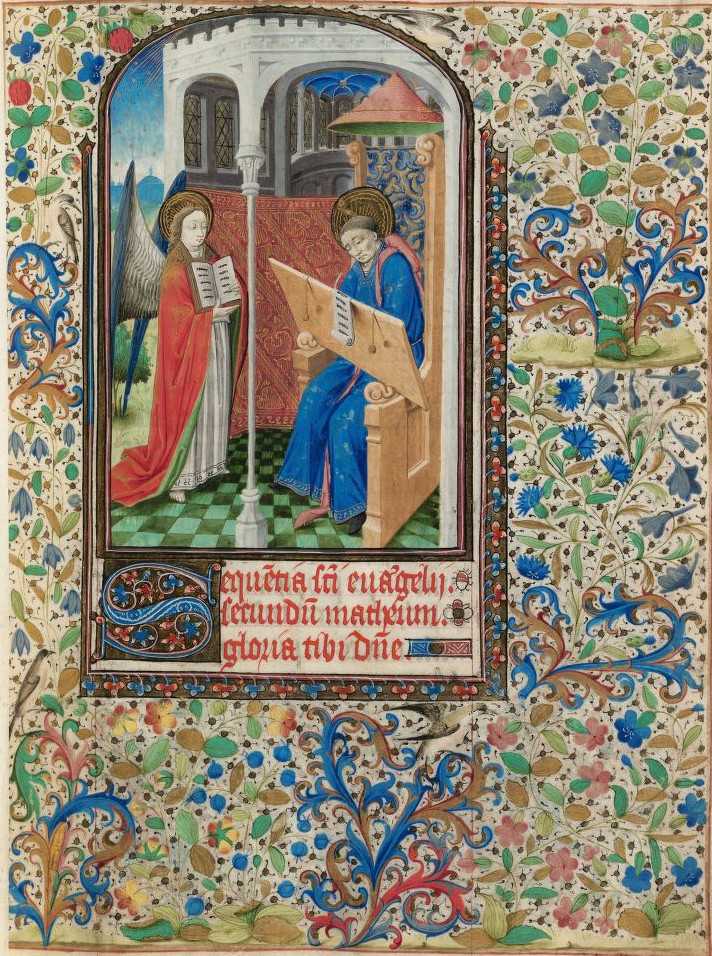 Sequētia sc̄i euāgelij.
secundū matheum.
gloria tibi dn̄e